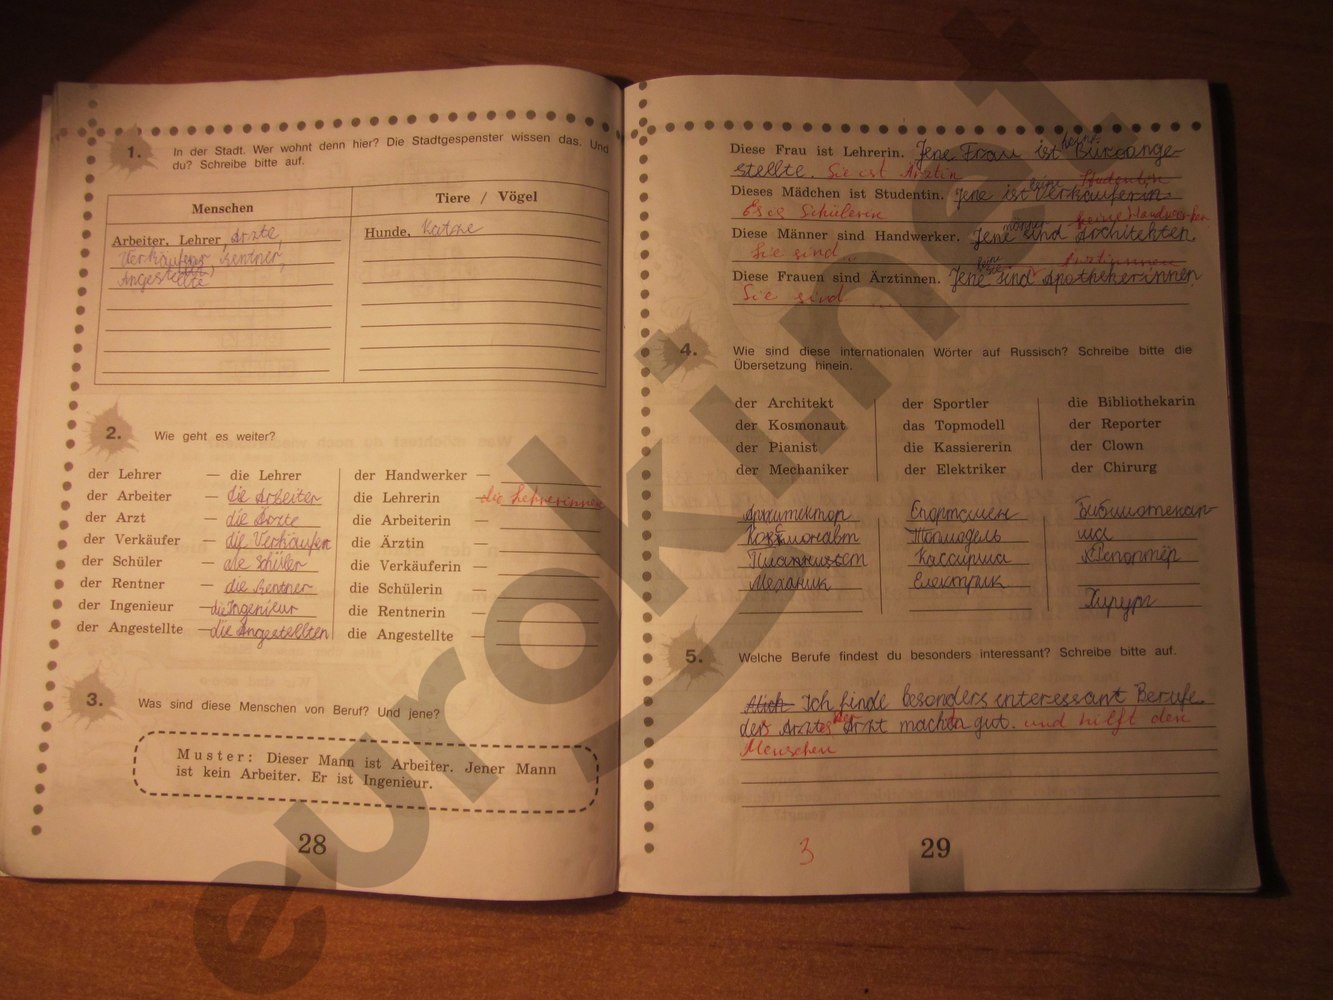 1.
In der Stadt. Wer wohnt denn hier? Die Stadtgespenster wissen das. Und
du? Schreibe bitte auf.
Menschen
Tiere / Vögel
Arbeiter, Lehrer, Ärzte,
Verkäufer, Rentner,
Angestellte
Hunde, Katze
2.
Wie geht es weiter?
der Lehrer — die Lehrer
der Arbeiter — die Arbeiter
der Arzt — die Ärzte
der Verkäufer — die Verkäufer
der Schüler — die Schüler
der Rentner — die Rentner
der Ingenieur — die Ingenieur
der Angestellte — die Angestellten
der Handwerker —
die Lehrerin — die Lehrerinnen
die Arbeiterin —
die Ärztin —
die Verkäuferin —
die Schülerin —
die Rentnerin —
die Angestellte —
3.
Was sind diese Menschen von Beruf? Und jene?
Muster: Dieser Mann ist Arbeiter. Jener Mann
ist kein Arbeiter. Er ist Ingenieur.
28
Diese Frau ist Lehrerin. Jene Frau ist Büroange-
stellte. Sie ist Ärztin
Dieses Mädchen ist Studentin. Jene ist keine Verkäuferin. Studentin
Es is Schülerin keine Handwerker
Diese Männer sind Handwerker. Jene Männer sind Architekten.
Sie sind ..
Diese Frauen sind Ärztinnen. Jene sind Apothekerinnen
Sie sind
4.
Wie sind diese internationalen Wörter auf Russisch? Schreibe bitte die
Übersetzung hinein.
der Architekt
der Kosmonaut
der Pianist
der Mechaniker
der Sportler
das Topmodell
die Kassiererin
der Elektriker
die Bibliothekarin
der Reporter
der Clown
der Chirurg
Архитектор
Космонавт
Пианист
Механик
Спортсмен
Топмодель
Кассирша
Електрик
Библиотекар-
ша
Репортёр
Хирург
5.
Welche Berufe findest du besonders interessant? Schreibe bitte auf.
Ich finde besonders interessant Berufe
des Arztes Der Arzt macht gut. und hilft den
Menschen
3
29
eurokinet